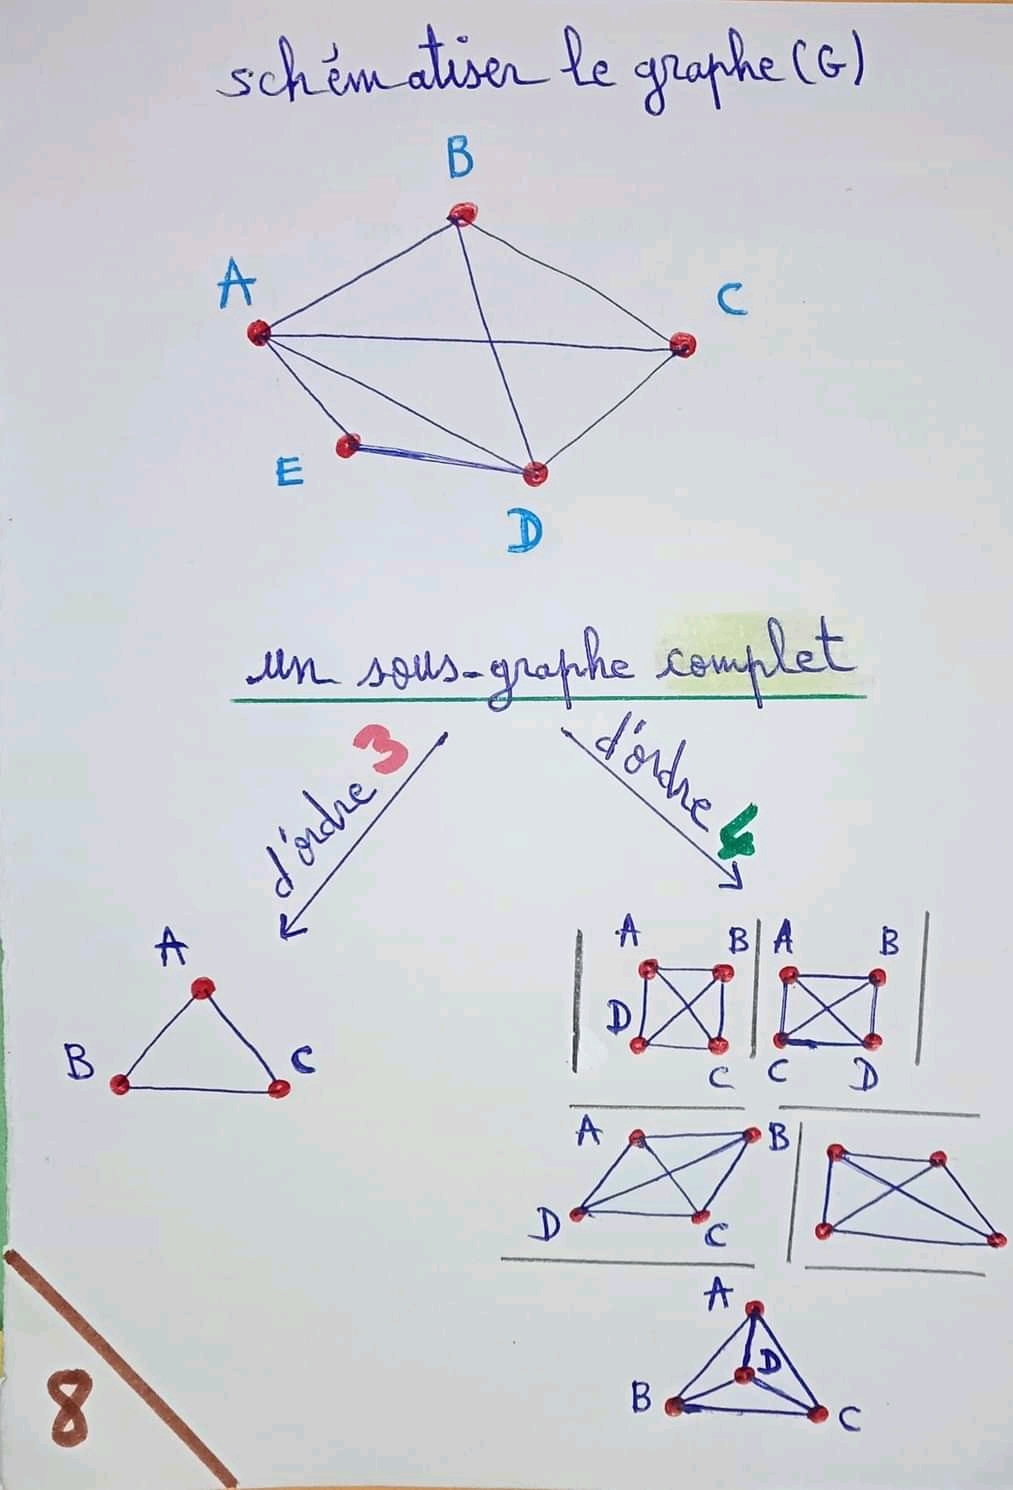 schématiser le graphe (G)
B
A
C
E
D
un sous-graphe complet
d'ordre 3
d'ordre 4
A
B
C
A
B
D
C
A
B
C
D
A
B
D
C
A
D
B
C
8